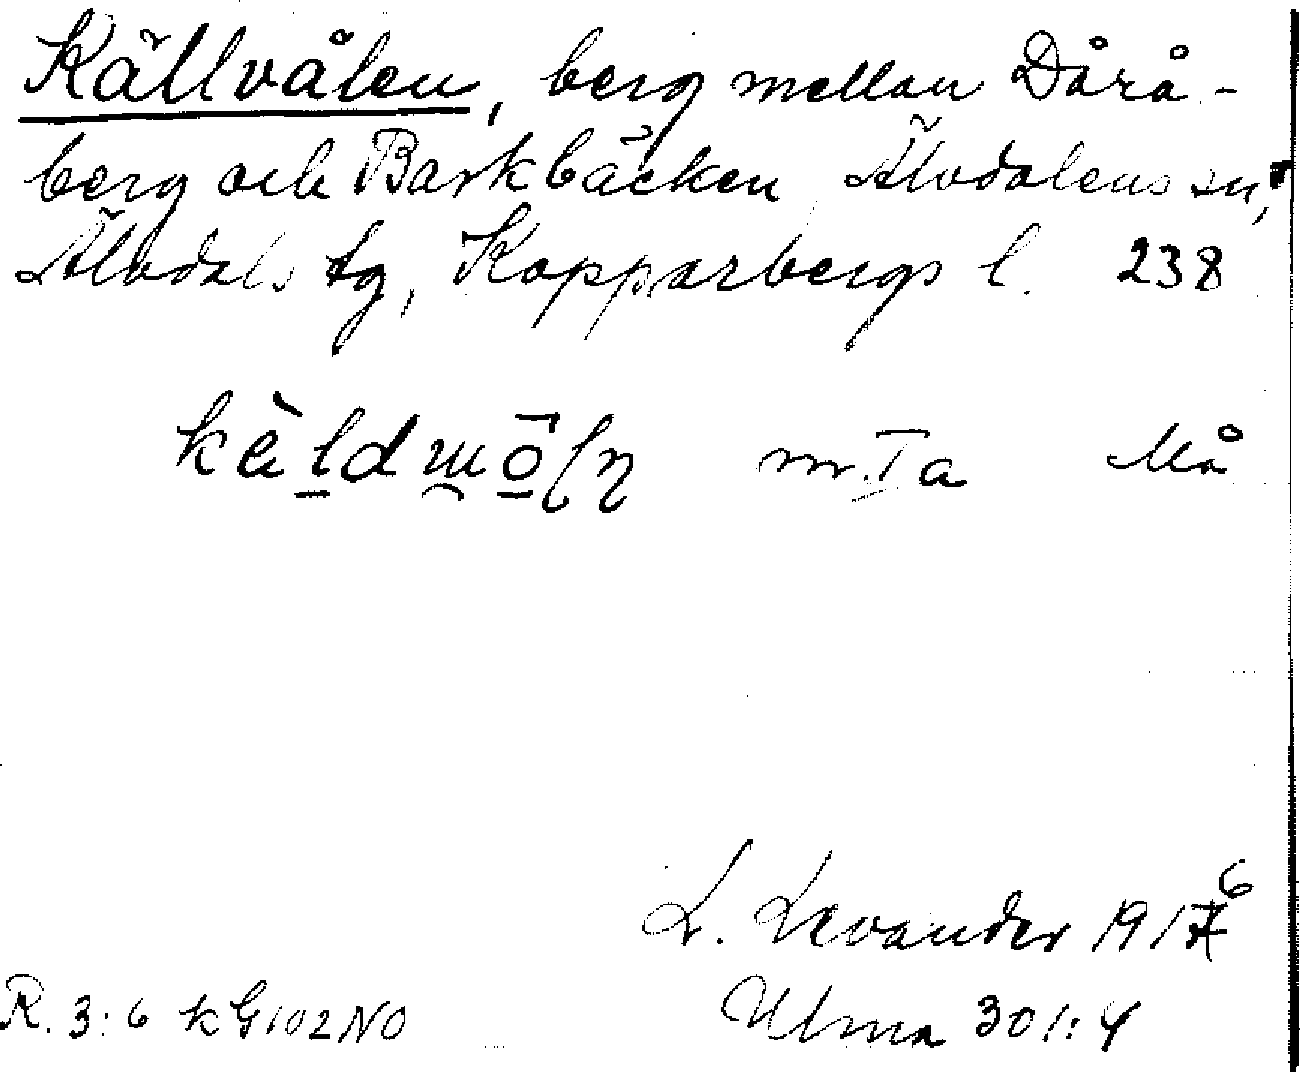 Källvålen, berg mellan Dårå-
berg och Barkbäcken Älvdalens sn,
Älvdals tg, Kopparbergs l. 238
m. Ia Må
L. Levander 1916
R. 3:6 KG102NO Ulma 301:4